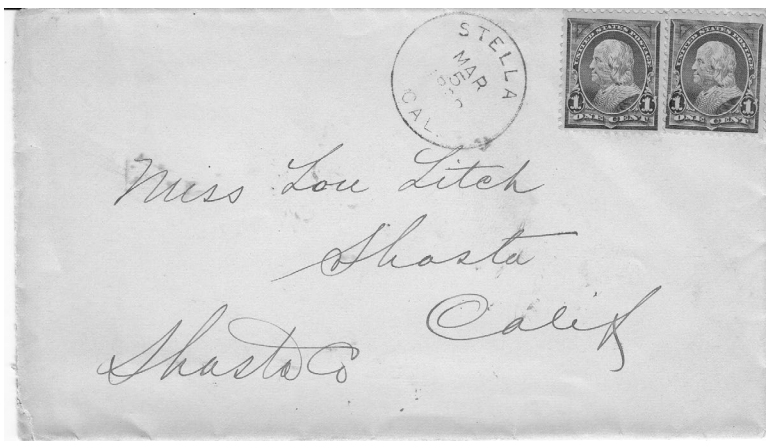 STELLA
MAR
5
CAL.
UNITED STATES POSTAGE
1 1
ONE CENT
UNITED STATES POSTAGE
1 1
ONE CENT
Miss Lou Litch
Shasta
Calif
Shasta Co